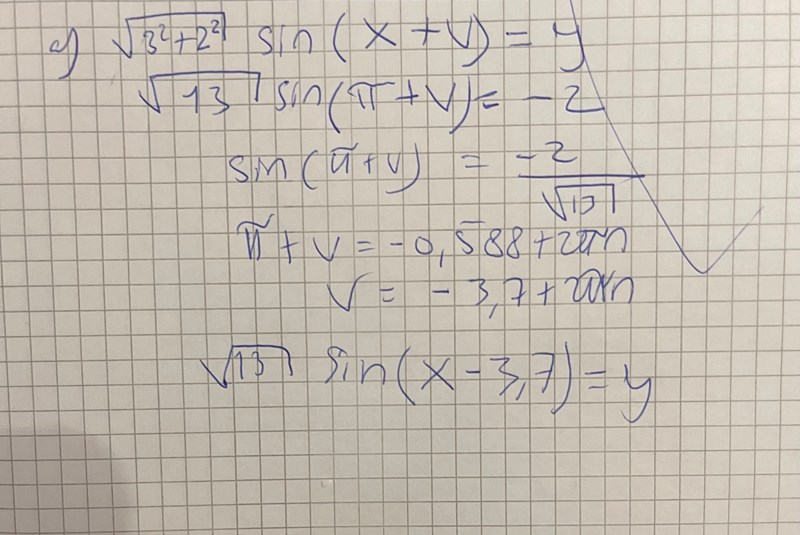 c) √(3²+2²) sin(x+v) = y
√13 sin(π+v) = -2
sin(π+v) = -2/√13
π+v = -0,588+2πn
v = -3,7+2πn
√13 sin(x-3,7) = y